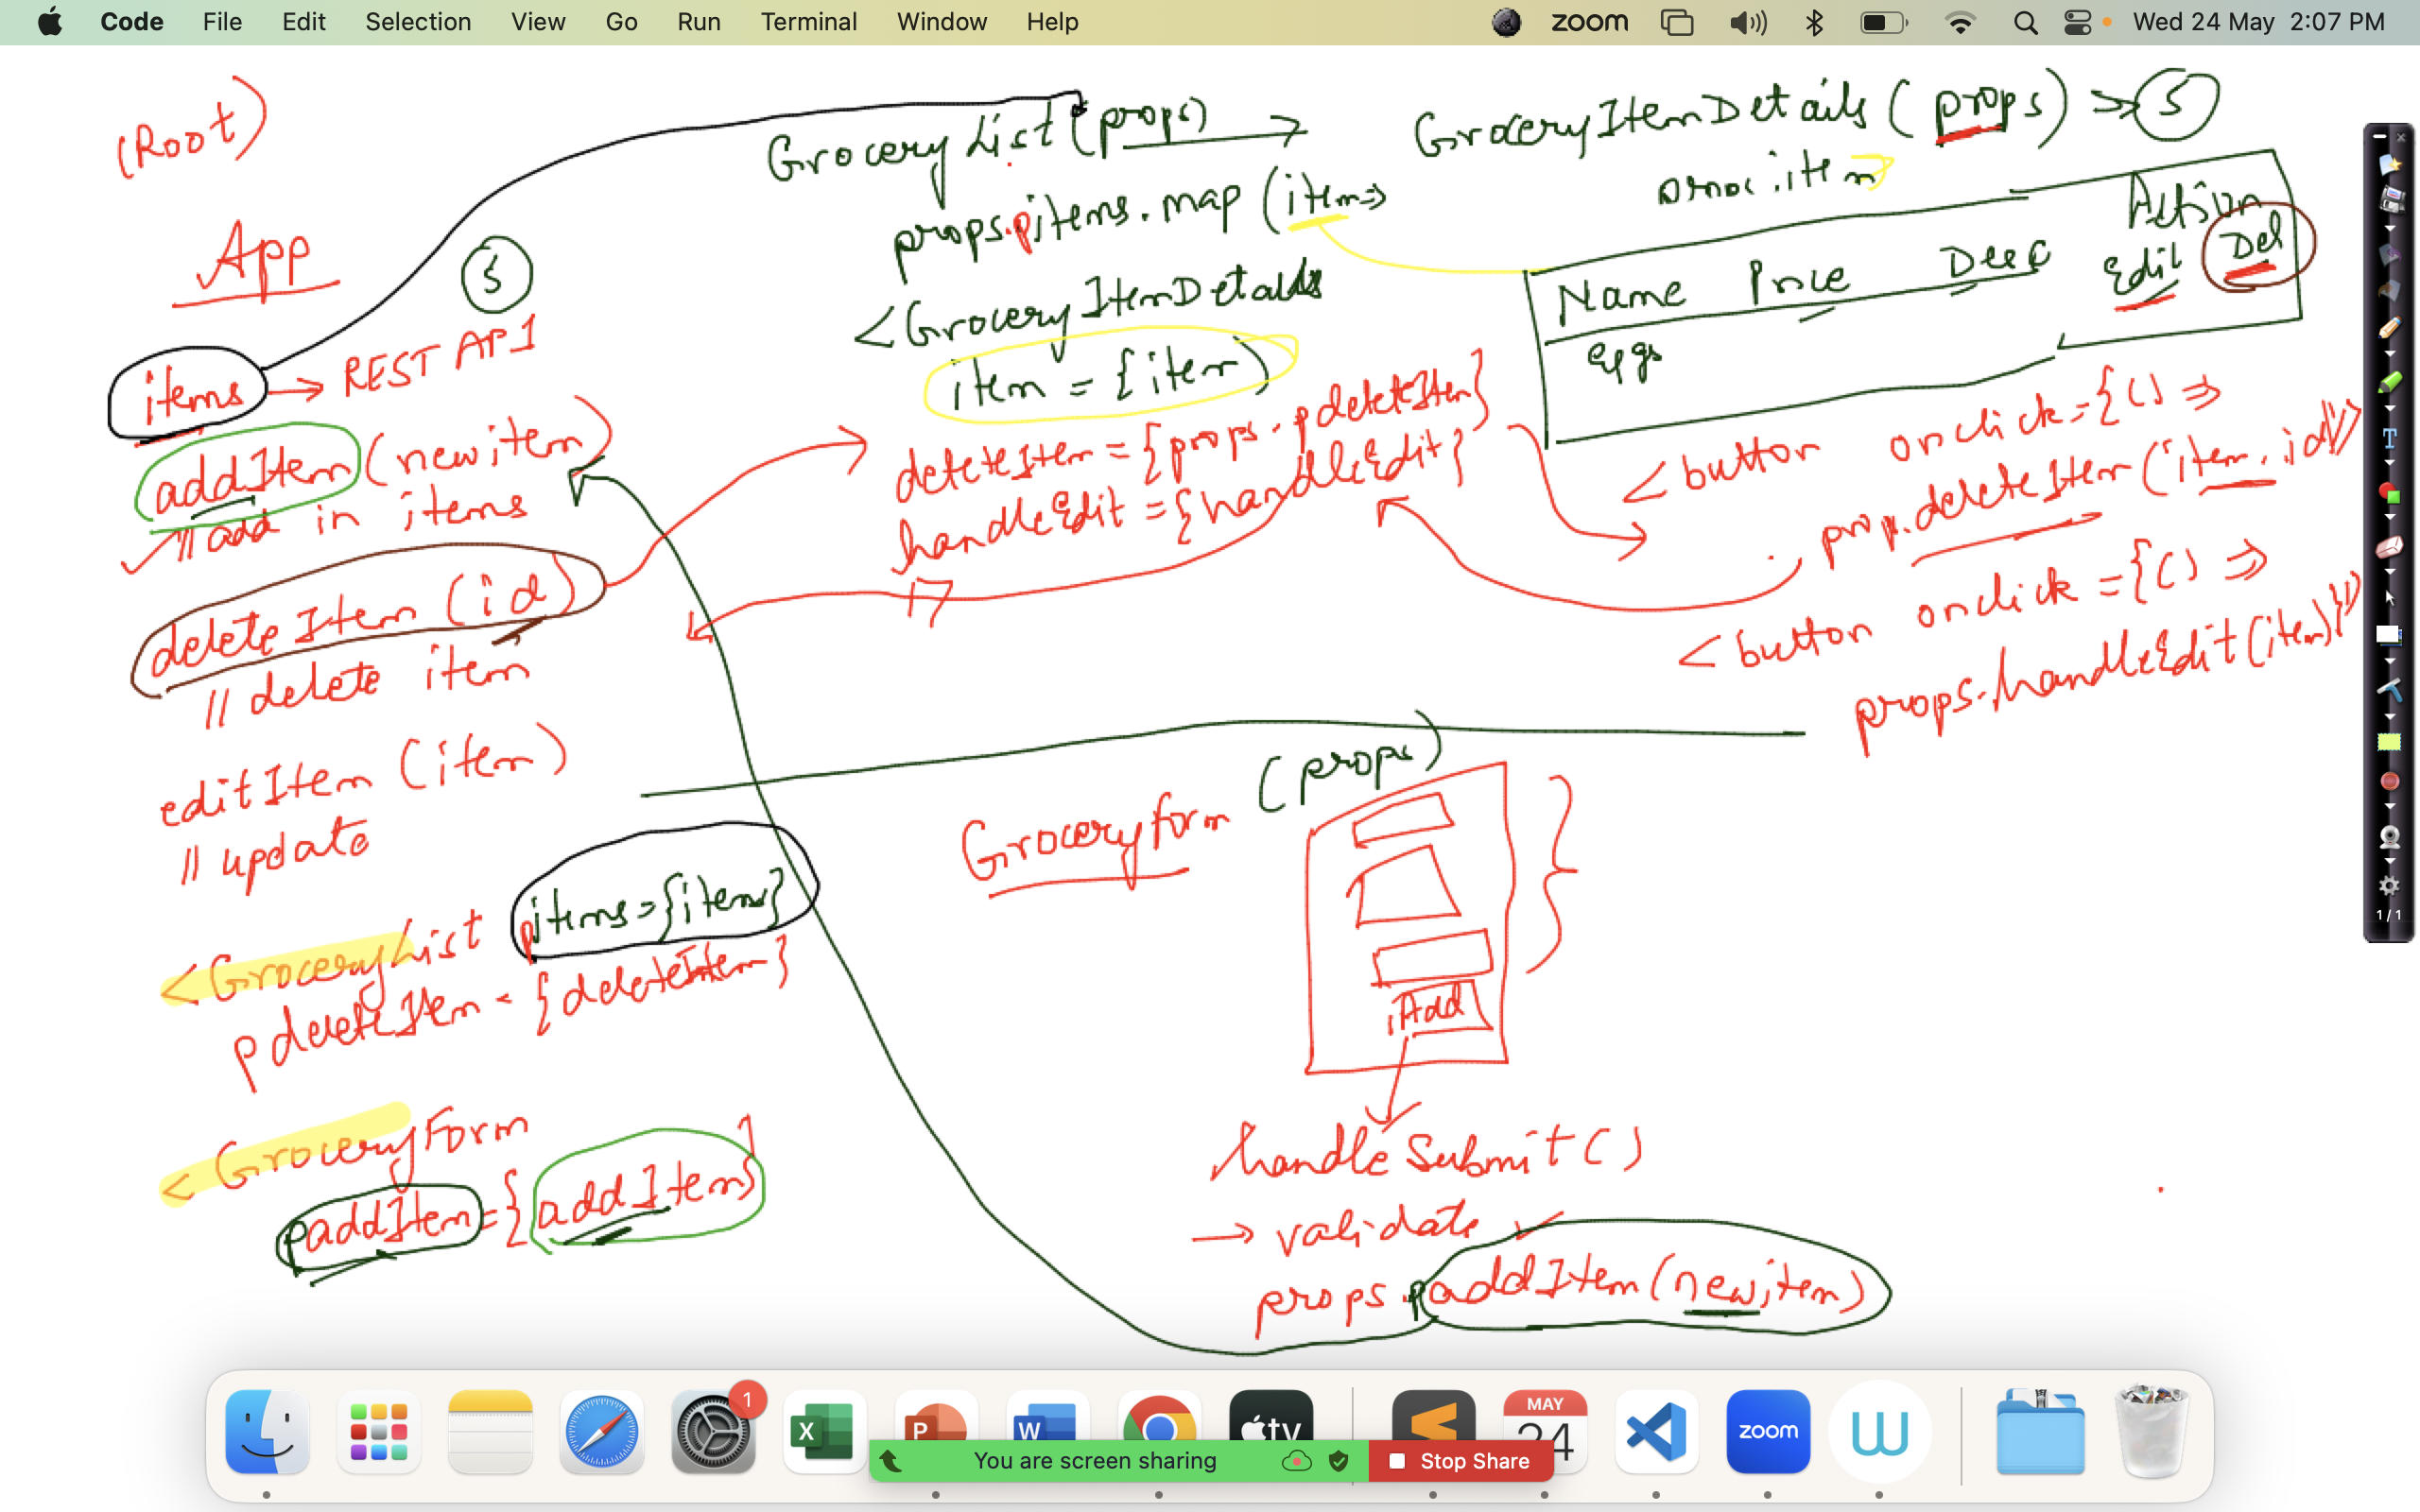 Code File Edit Selection View Go Run Terminal Window Help zoom Wed 24 May 2:07 PM
(Root)
App
5
items → REST API
addItem (newitem)
// add in items
deleteItem (id)
// delete item
editItem (item)
// update
<GroceryList pitems={items}
pdeleteItem = {deleteItem}
<GroceryForm
paddItem = {addItem}
GroceryList (props)
props.pitems.map (item =>
<GroceryItemDetails
item = {item}
deleteItem = {props.pdeleteItem}
handleEdit = {handleEdit}
GroceryItemDetails (props) => 5
Name Price Desc Action
Edit Del
eggs
<button onclick={() =>
prop.deleteItem (item.id)}>
<button onclick={() =>
props.handleEdit(item)}>
Groceryform (props)
Add
handleSubmit()
→ validate
props.paddItem(newitem)
1/1
1
X
P
W
tv
MAY
24
zoom
W
You are screen sharing Stop Share